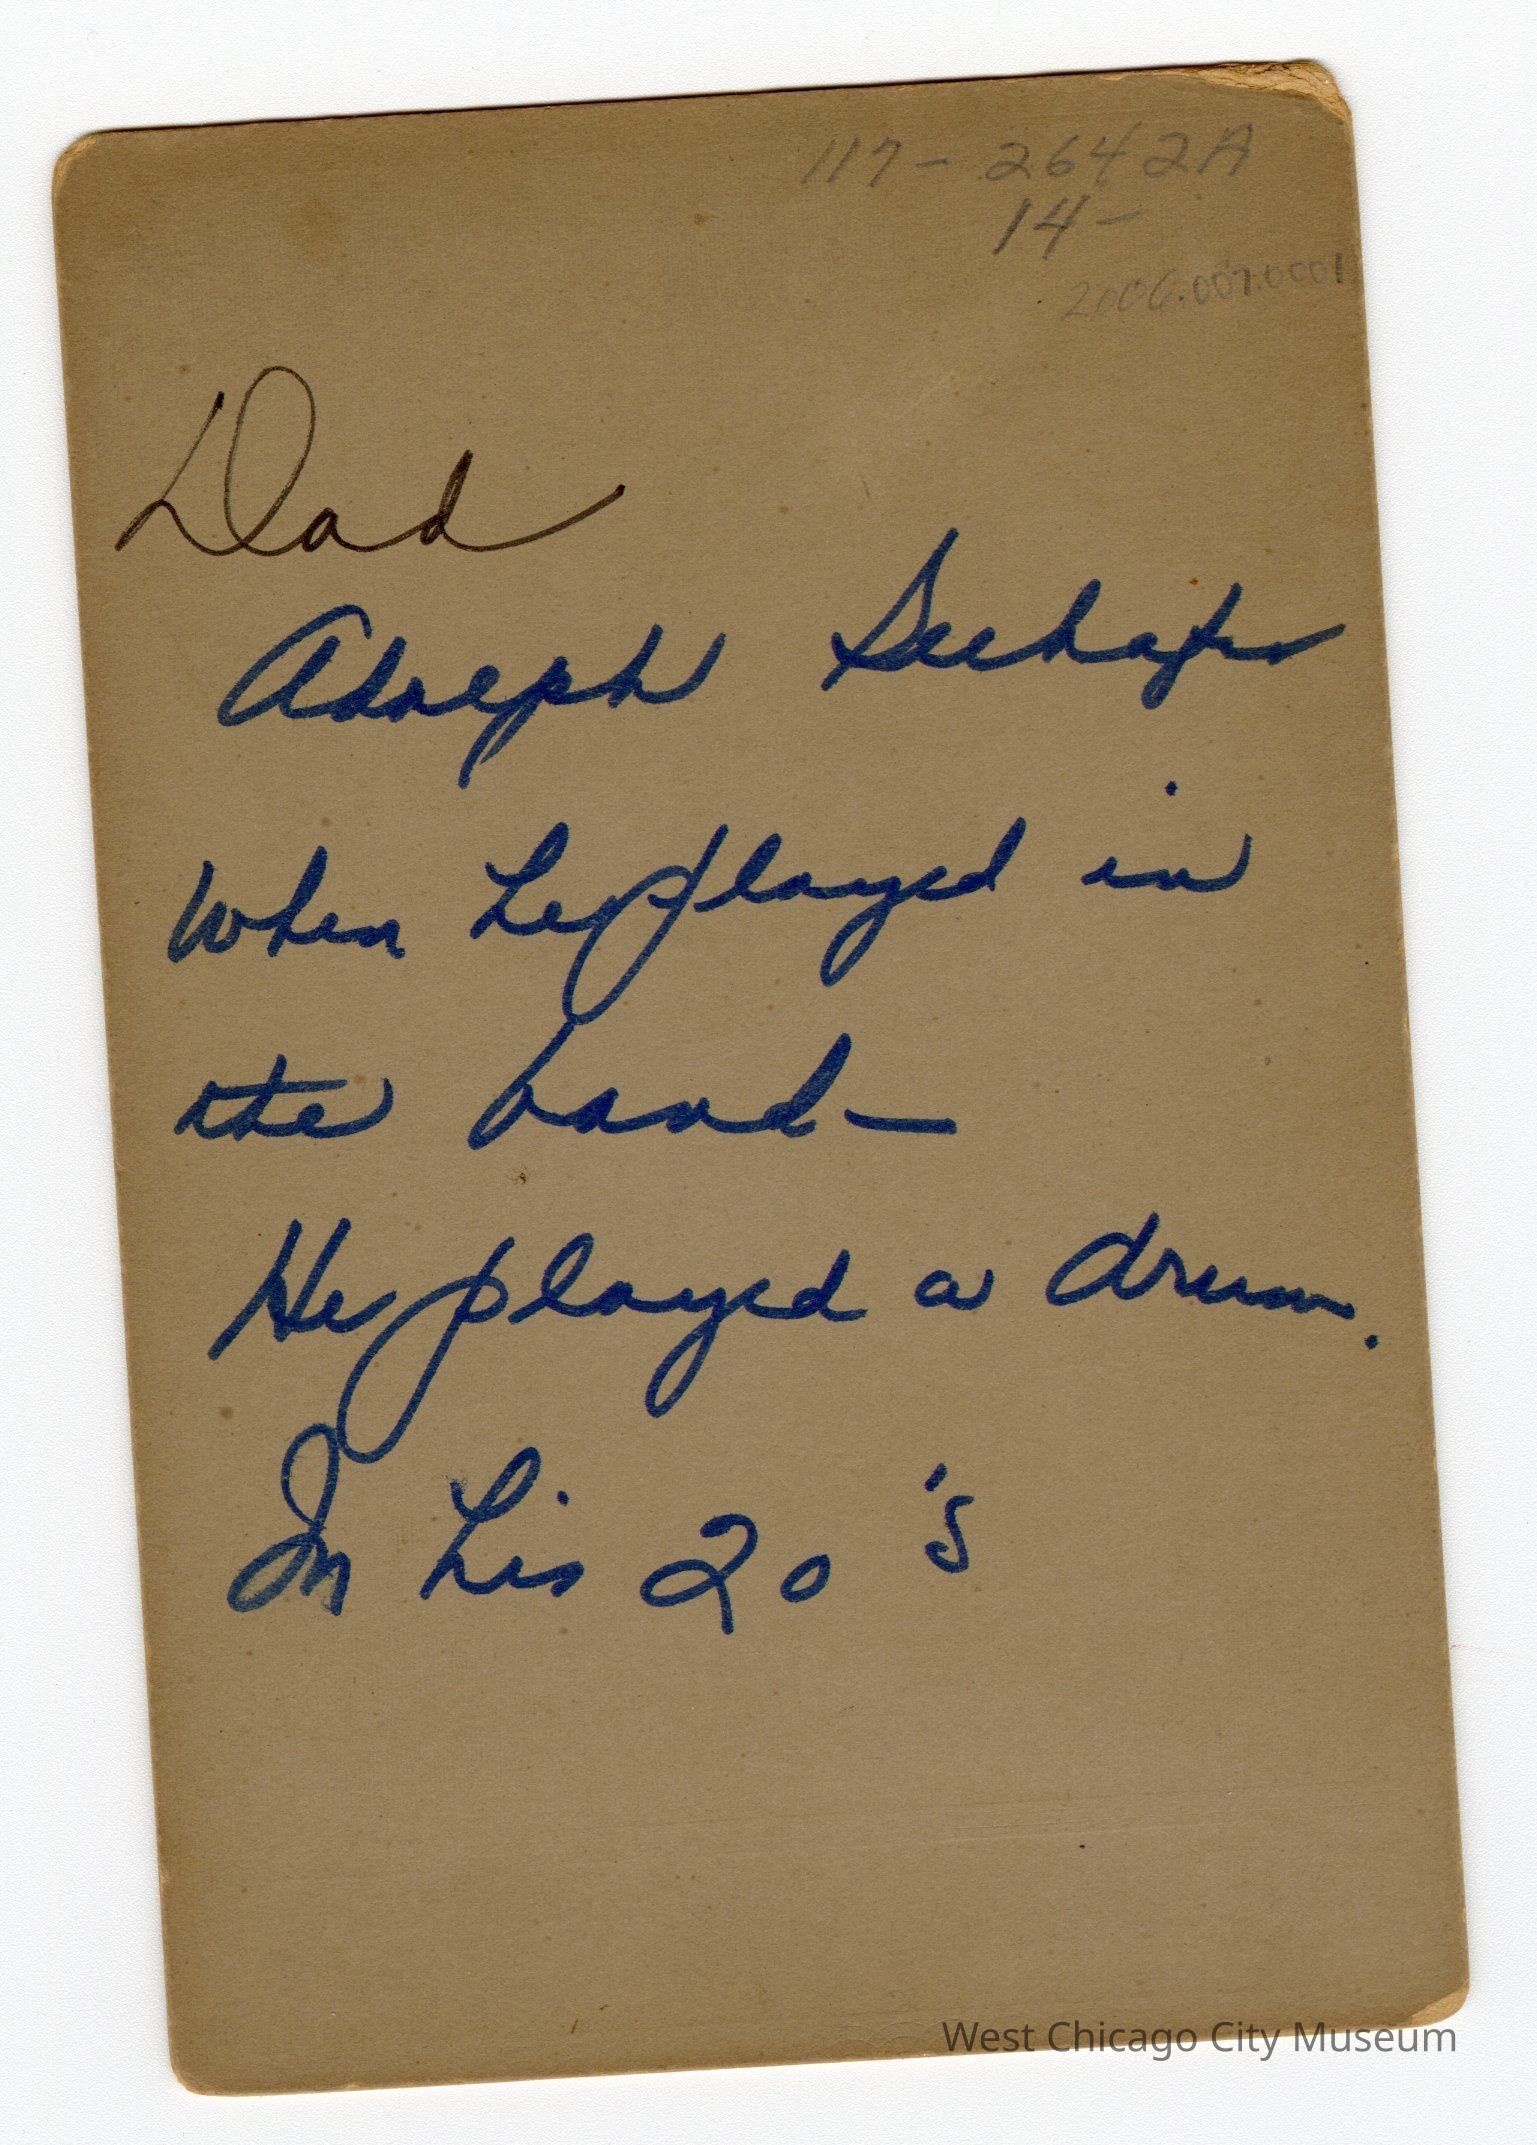 117-2642A
14-
2006.007.0001
Dad
Adolph Seehafer
When he played in
the band-
He played a drum.
In his 20's
West Chicago City Museum